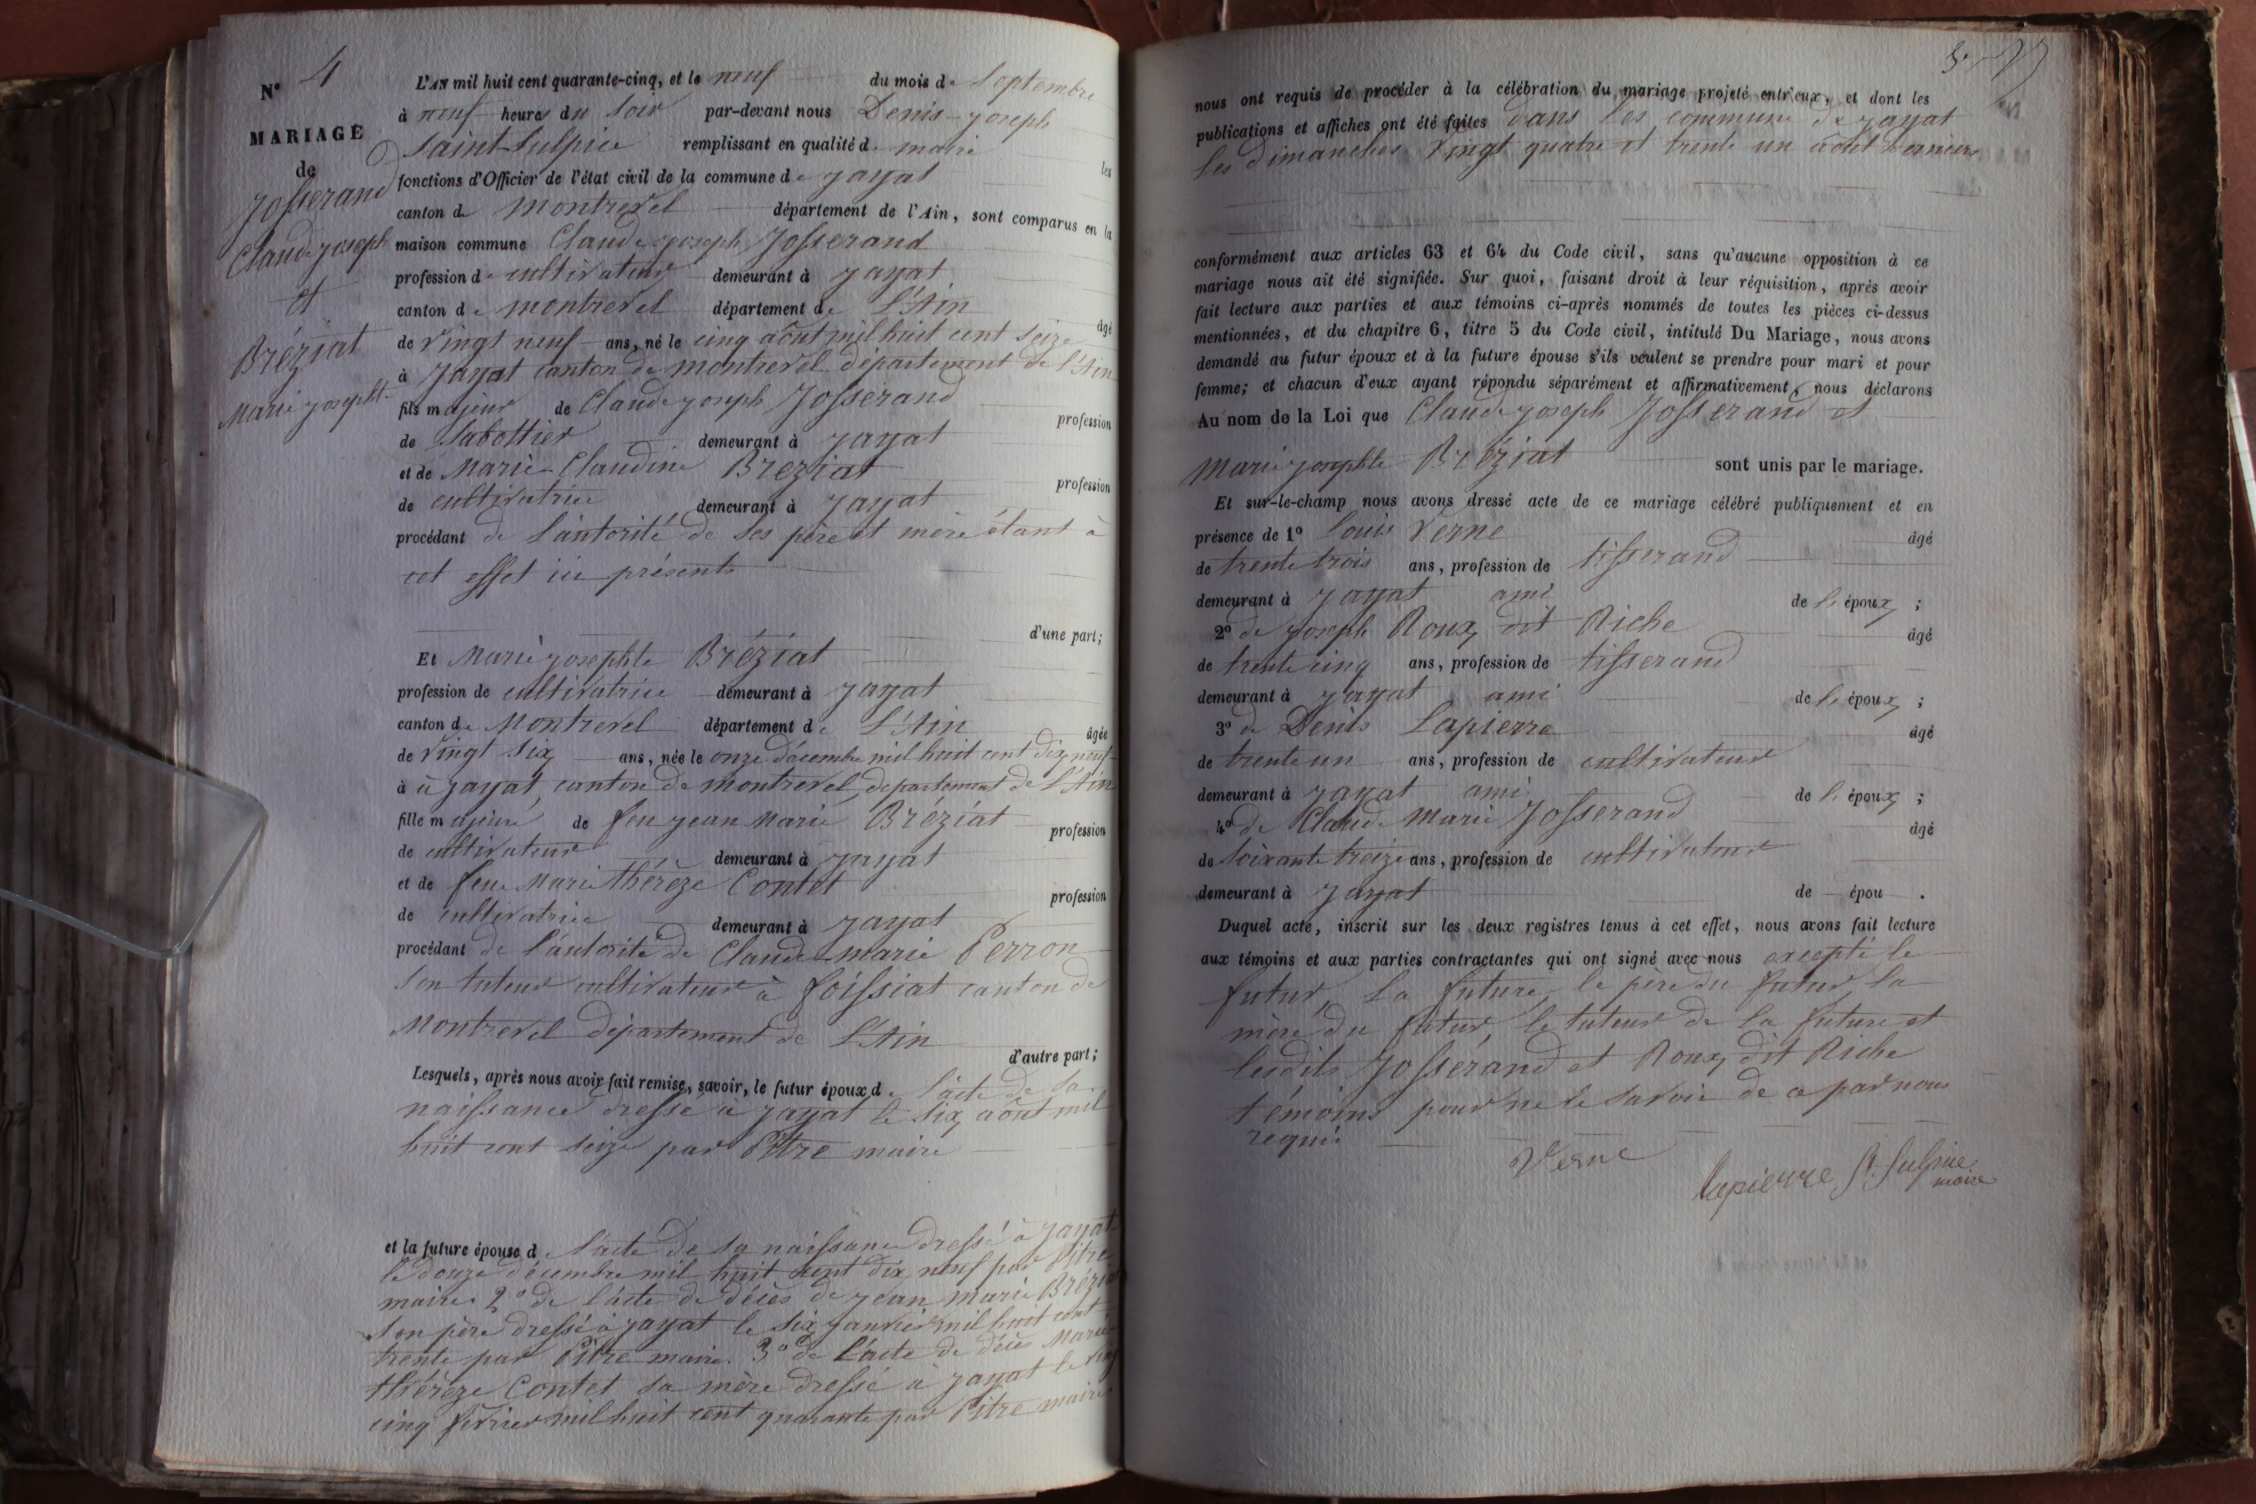 N° 4
MARIAGE
de
Josserand
Claude joseph
et
Bréziat
Marie josephte
L'AN mil huit cent quarante-cinq, et le neuf du mois de Septembre
à neuf heures du soir par-devant nous Denis-joseph
Saint Sulpice remplissant en qualité de maire les
fonctions d'Officier de l'état civil de la commune de jayat
canton de montrevel département de l'Ain, sont comparus en la
maison commune Claude joseph Josserand
profession de cultivateur demeurant à jayat
canton de montrevel département de L'Ain
âgé
de vingt neuf ans, né le cinq août mil huit cent seize
à Jayat canton de montrevel département de l'Ain
fils majeur de Claude joseph Josserand
profession
de Sabottier demeurant à jayat
et de Marie-Claudine Breziat
profession
de cultivatrice demeurant à jayat
procédant de l'autorité de ses père et mère étant à
cet effet ici présents
d'une part;
Et Marie josephte Bréziat
profession de cultivatrice demeurant à jayat
canton de Montrevel département de L'Ain
âgée
de vingt six ans, née le onze décembre mil huit cent dix neuf
à à jayat, canton de montrevel, département de L'Ain
fille majeure de feu jean Marie Bréziat
profession
de cultivateur demeurant à jayat
et de feue Marie thérèze Contet
profession
de cultivatrice demeurant à jayat
procédant de l'autorité de Claude-marie Perron
son tuteur cultivateur à foissiat canton de
Montrevel département de L'Ain
d'autre part;
Lesquels, après nous avoir fait remise, savoir, le futur époux de l'acte de sa
naissance dressé à jayat le six août mil
huit cent seize par Pitre maire
et la future épouse de l'acte de sa naissance dressé à jayat
le douze décembre mil huit cent dix neuf par Pitre
maire 2° de l'acte de décès de jean marie Bréziat
son père dressé à jayat le six janvier mil huit cent
trente par Pitre maire. 3° de l'acte de décès Marie
thérèze Contet sa mère dressé à jayat le vingt
cinq février mil huit cent quarante par Pitre maire
nous ont requis de procéder à la célébration du mariage projeté entr'eux, et dont les
publications et affiches ont été faites dans les commune de jayat
les dimanches vingt quatre et trente un août derniers
conformément aux articles 63 et 64 du Code civil, sans qu'aucune opposition à ce
mariage nous ait été signifiée. Sur quoi, faisant droit à leur réquisition, après avoir
fait lecture aux parties et aux témoins ci-après nommés de toutes les pièces ci-dessus
mentionnées, et du chapitre 6, titre 5 du Code civil, intitulé Du Mariage, nous avons
demandé au futur époux et à la future épouse s'ils veulent se prendre pour mari et pour
femme; et chacun d'eux ayant répondu séparément et affirmativement, nous déclarons
Au nom de la Loi que Claude joseph Josserand et
Marie josephte Bréziat sont unis par le mariage.
Et sur-le-champ nous avons dressé acte de ce mariage célébré publiquement et en
présence de 1° Louis Verne âgé
de trente trois ans, profession de tisserand
demeurant à jayat ami de l'époux;
2° de joseph Roux dit Riche âgé
de trente cinq ans, profession de tisserand
demeurant à jayat ami de l'époux;
3° de Denis Lapierre âgé
de trente un ans, profession de cultivateur
demeurant à jayat ami de l'époux;
4° de Claude Marie Josserand âgé
de soixante treize ans, profession de cultivateur
demeurant à jayat de épou .
Duquel acte, inscrit sur les deux registres tenus à cet effet, nous avons fait lecture
aux témoins et aux parties contractantes qui ont signé avec nous excepté le
futur, la future, le père du futur, la
mère du futur, le tuteur de la future et
lesdits Josserand et Roux dit Riche
témoins pour ne le savoir de ce par nous
requis
Verne
Lapierre St Sulpice
maire